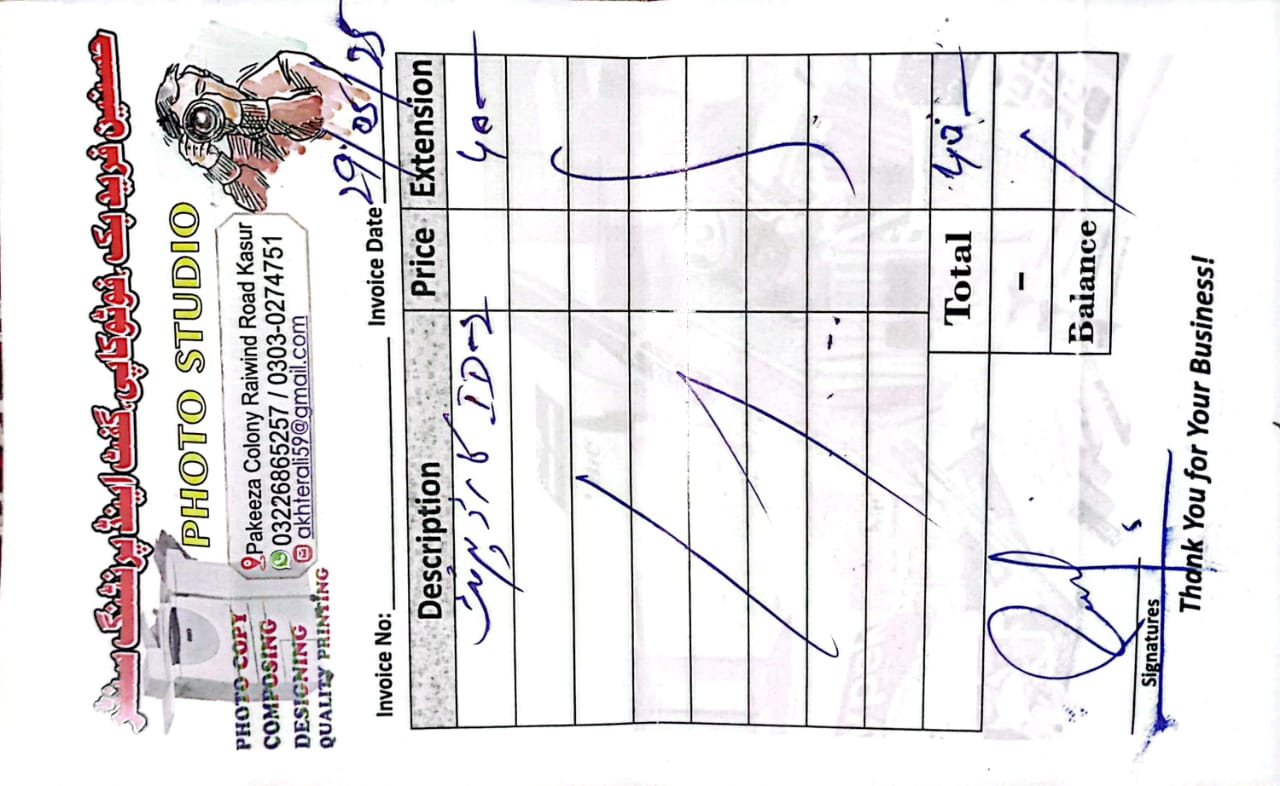 حسنین فرید بک فوٹو کاپی گفٹ اینڈ پرنٹنگ سنٹر
PHOTO STUDIO
Pakeeza Colony Raiwind Road Kasur
03226865257 / 0303-0274751
akhterali59@gmail.com
PHOTO COPY
COMPOSING
DESIGNING
QUALITY PRINTING
Invoice No:
Invoice Date 29/05/25
Description Price Extension
کارڈ ID-2
Total
-
Balance
Signatures
Thank You for Your Business!